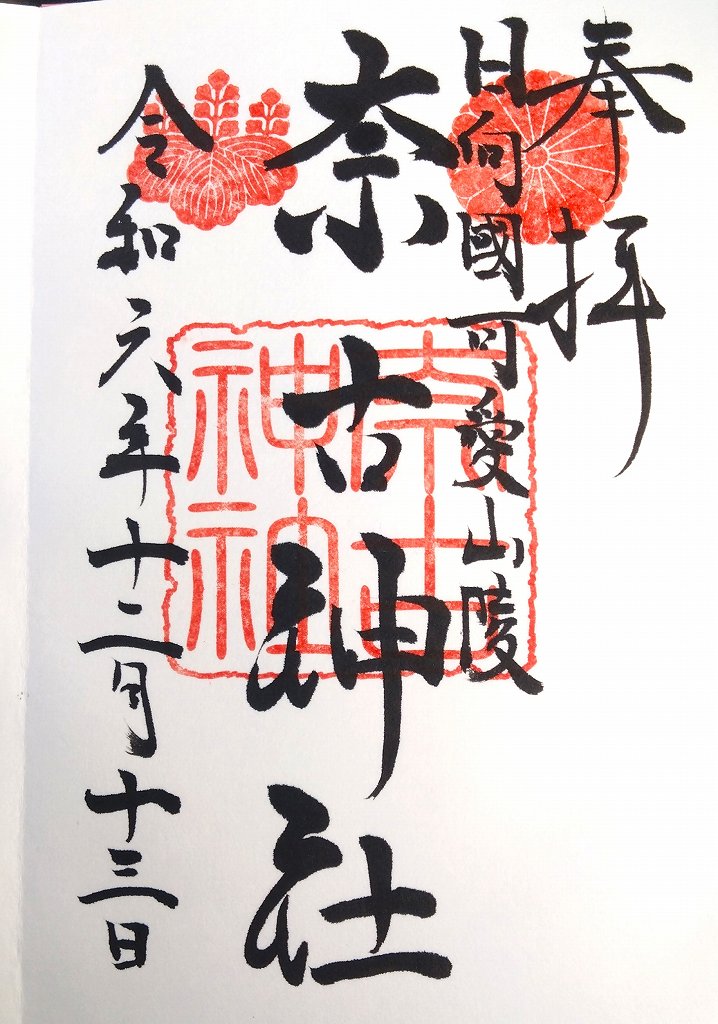 奉拝
日向國可愛山陵
奈古神社
奈古神社
令和六年十二月十三日